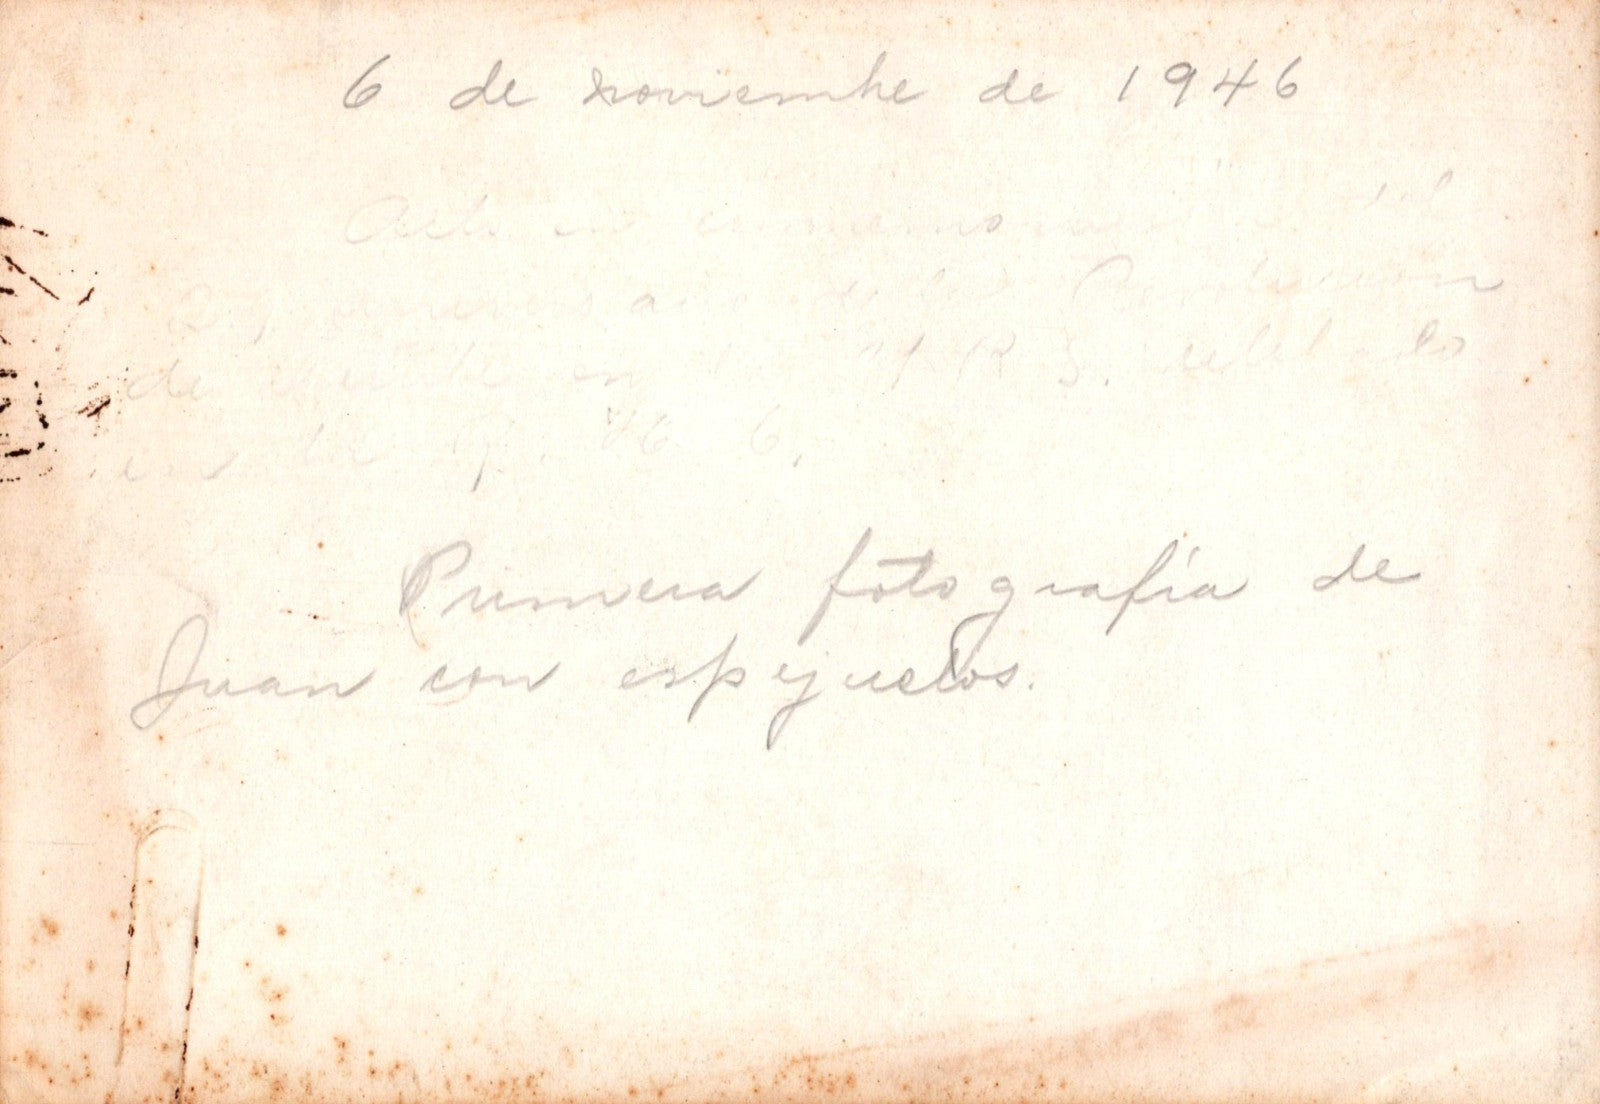 6 de noviembre de 1946
Acto en conmemoración del
aniversario de la Revolución
de en la URSS. celebrado
en la
Primera fotografía de
Juan con espejuelos.